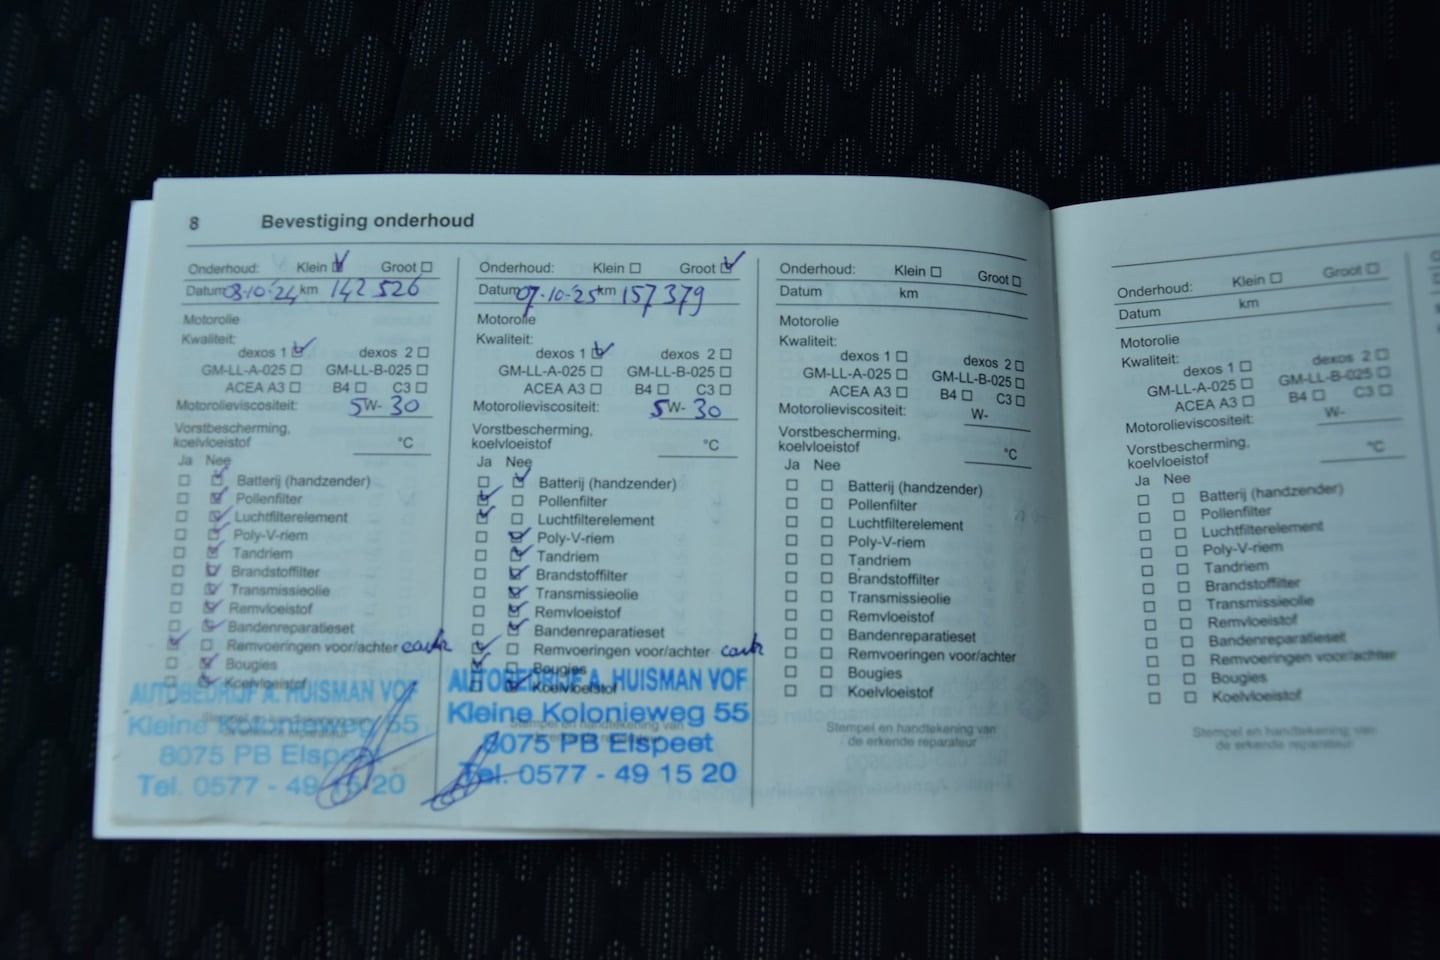 8 Bevestiging onderhoud
Onderhoud: Klein Groot
Datum 03-10-'24 km 142 526
Motorolie
Kwaliteit:
dexos 1 dexos 2
GM-LL-A-025 GM-LL-B-025
ACEA A3 B4 C3
Motorolieviscositeit: 5W-30
Vorstbescherming,
koelvloeistof °C
Ja Nee
Batterij (handzender)
Pollenfilter
Luchtfilterelement
Poly-V-riem
Tandriem
Brandstoffilter
Transmissieolie
Remvloeistof
Bandenreparatieset
Remvoeringen voor/achter
Bougies
Koelvloeistof
AUTOBEDRIJF A. HUISMAN VOF
Kleine Kolonieweg 55
8075 PB Elspeet
Tel. 0577 - 49 15 20
Onderhoud: Klein Groot
Datum 07-10-'25 km 157 379
Motorolie
Kwaliteit:
dexos 1 dexos 2
GM-LL-A-025 GM-LL-B-025
ACEA A3 B4 C3
Motorolieviscositeit: 5W-30
Vorstbescherming,
koelvloeistof °C
Ja Nee
Batterij (handzender)
Pollenfilter
Luchtfilterelement
Poly-V-riem
Tandriem
Brandstoffilter
Transmissieolie
Remvloeistof
Bandenreparatieset
Remvoeringen voor/achter
Bougies
Koelvloeistof
AUTOBEDRIJF A. HUISMAN VOF
Stempel en handtekening van
Kleine Kolonieweg 55
8075 PB Elspeet
Tel. 0577 - 49 15 20
Onderhoud: Klein Groot
Datum km
Motorolie
Kwaliteit:
dexos 1 dexos 2
GM-LL-A-025 GM-LL-B-025
ACEA A3 B4 C3
Motorolieviscositeit: W-
Vorstbescherming,
koelvloeistof °C
Ja Nee
Batterij (handzender)
Pollenfilter
Luchtfilterelement
Poly-V-riem
Tandriem
Brandstoffilter
Transmissieolie
Remvloeistof
Bandenreparatieset
Remvoeringen voor/achter
Bougies
Koelvloeistof
Stempel en handtekening van
de erkende reparateur
Onderhoud: Klein Groot
Datum km
Motorolie
Kwaliteit:
dexos 1 dexos 2
GM-LL-A-025 GM-LL-B-025
ACEA A3 B4 C3
Motorolieviscositeit: W-
Vorstbescherming,
koelvloeistof °C
Ja Nee
Batterij (handzender)
Pollenfilter
Luchtfilterelement
Poly-V-riem
Tandriem
Brandstoffilter
Transmissieolie
Remvloeistof
Bandenreparatieset
Remvoeringen voor/achter
Bougies
Koelvloeistof
Stempel en handtekening van
de erkende reparateur